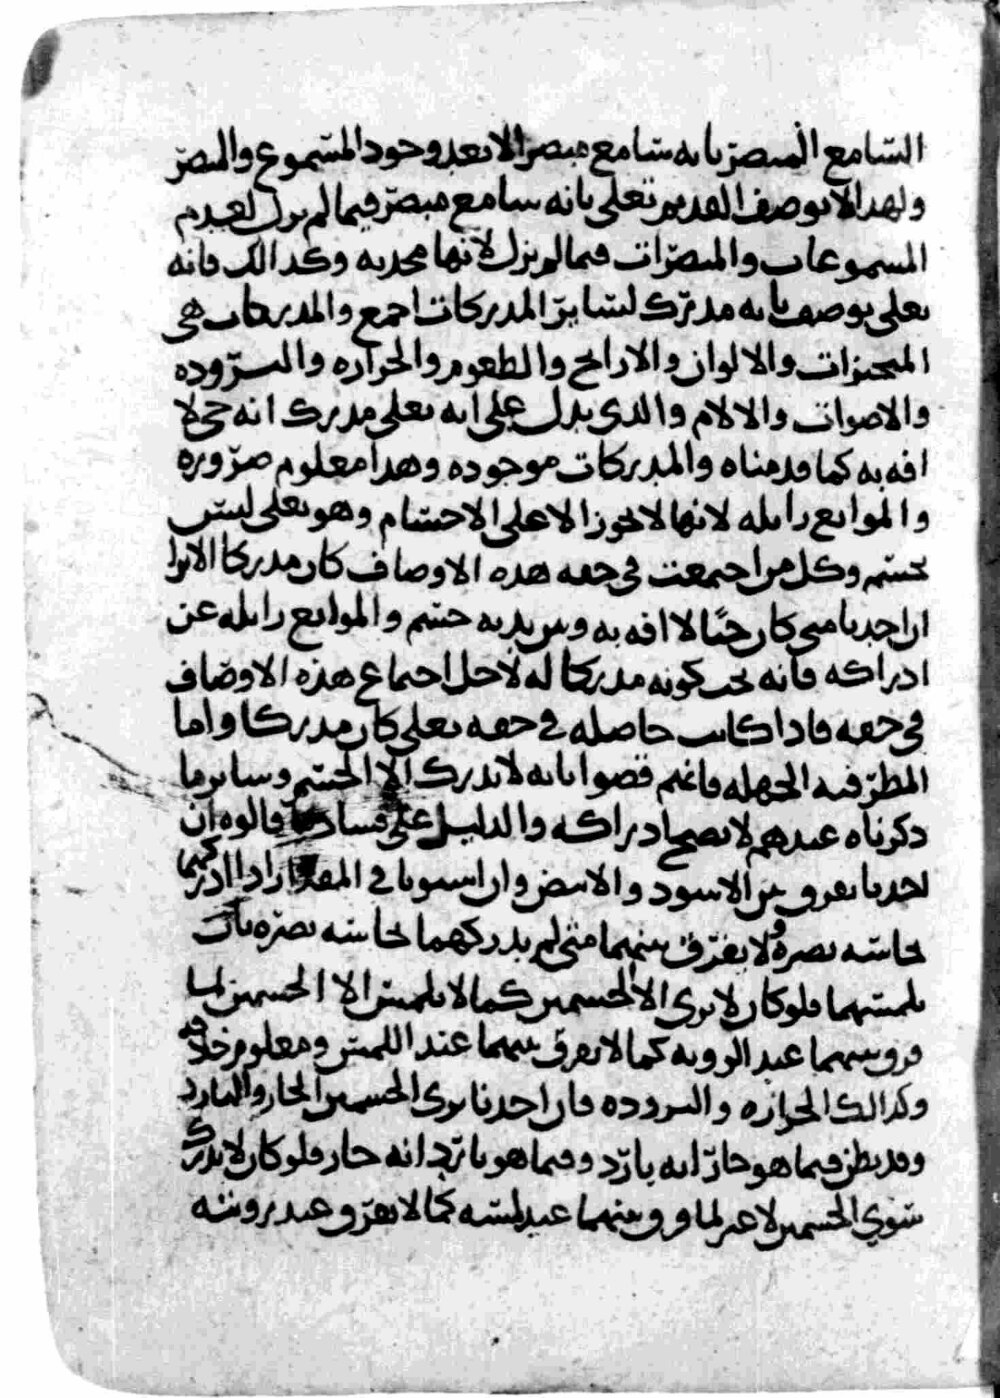 السامع المبصر بانه سامع مبصر الا بعد وجود المسموع والمبصر
ولهذا لا يوصف القديم تعلى بانه سامع مبصر فيما لم يزل لعدم
المسموعات والمبصرات فيما لم يزل لانها محدثه وكذالك فانه
تعلى يوصف بانه مدرك لساير المدركات اجمع والمدركات هي
المتحيزات والالوان والارايح والطعوم والحراره والبروده
والاصوات والالام والذي يدل على انه تعلى مدرك انه حي لا
افه به كما قدمناه والمدركات موجوده وهذا معلوم ضروره
والموانع زايله لانها لا تجوز الا على الاجسام وهو تعلى ليس
بجسم وكل من اجتمعت في حقه هذه الاوصاف كان مدركا الا ترا
ان احدنا متى كان حيا لا افه به وبين يديه جسم والموانع زايله عن
ادراكه فانه يجب كونه مدركا له لاجل اجتماع هذه الاوصاف
في حقه فاذا كانت حاصله في حقه تعلى كان مدركا واما
المطرفيه الجهله فانهم قضوا بانه لا يدرك الا الجسم وساير ما
ذكرناه عندهم لا يصح ادراكه والدليل على فساد ما قالوه ان
احدنا يفرق بين الاسود والابيض وان استويا في المقدار اذا ادركهما
بحاسه بصره ولا يفرق بينهما متى لم يدركهما بحاسه بصره بان
يلمسهما فلو كان لا يرى الا الجسمين كما لا يلمس الا الجسمين لما
فرق بينهما عند الرويه كما لا يفرق بينهما عند اللمس ومعلوم خلافه
وكذالك الحراره والبروده فان احدنا يرى الجسمين الحار والبارد
وقد يظن فيما هو حار انه بارد وفيما هو بارد انه حار فلو كان لا يدرك
سوي الجسمين لا غير لما فرق بينهما عند لمسه كما لا يفرق عند رويته